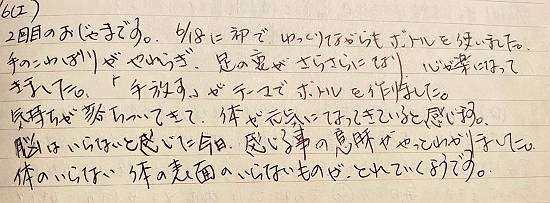 6(工)
2回目のおじゃまです。6/18に初でゆっくりながらもボトルを使いました。
手のこわばりがやわらぎ、足の裏がさらさらになり 心が楽になって
きました。「手放す」がテーマでボトルを作りました。
気持ちが落ちついてきて、体が元気になってきていると感じます。
脳はいらないと感じた今日、感じる事の意味がやっとわかりました。
体のいらない 体の表面のいらないものが、とれていくようです。